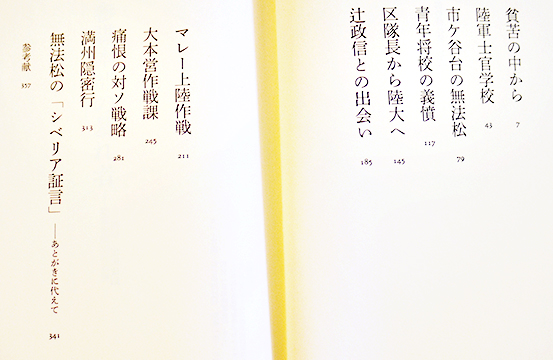 貧苦の中から 7
陸軍士官学校 43
市ケ谷台の無法松 79
青年将校の義憤 117
区隊長から陸大へ 145
辻政信との出会い 185
マレー上陸作戦 211
大本営作戦課 245
痛恨の対ソ戦略 281
満州隠密行 313
無法松の「シベリア証言」——あとがきに代えて 341
参考献 357